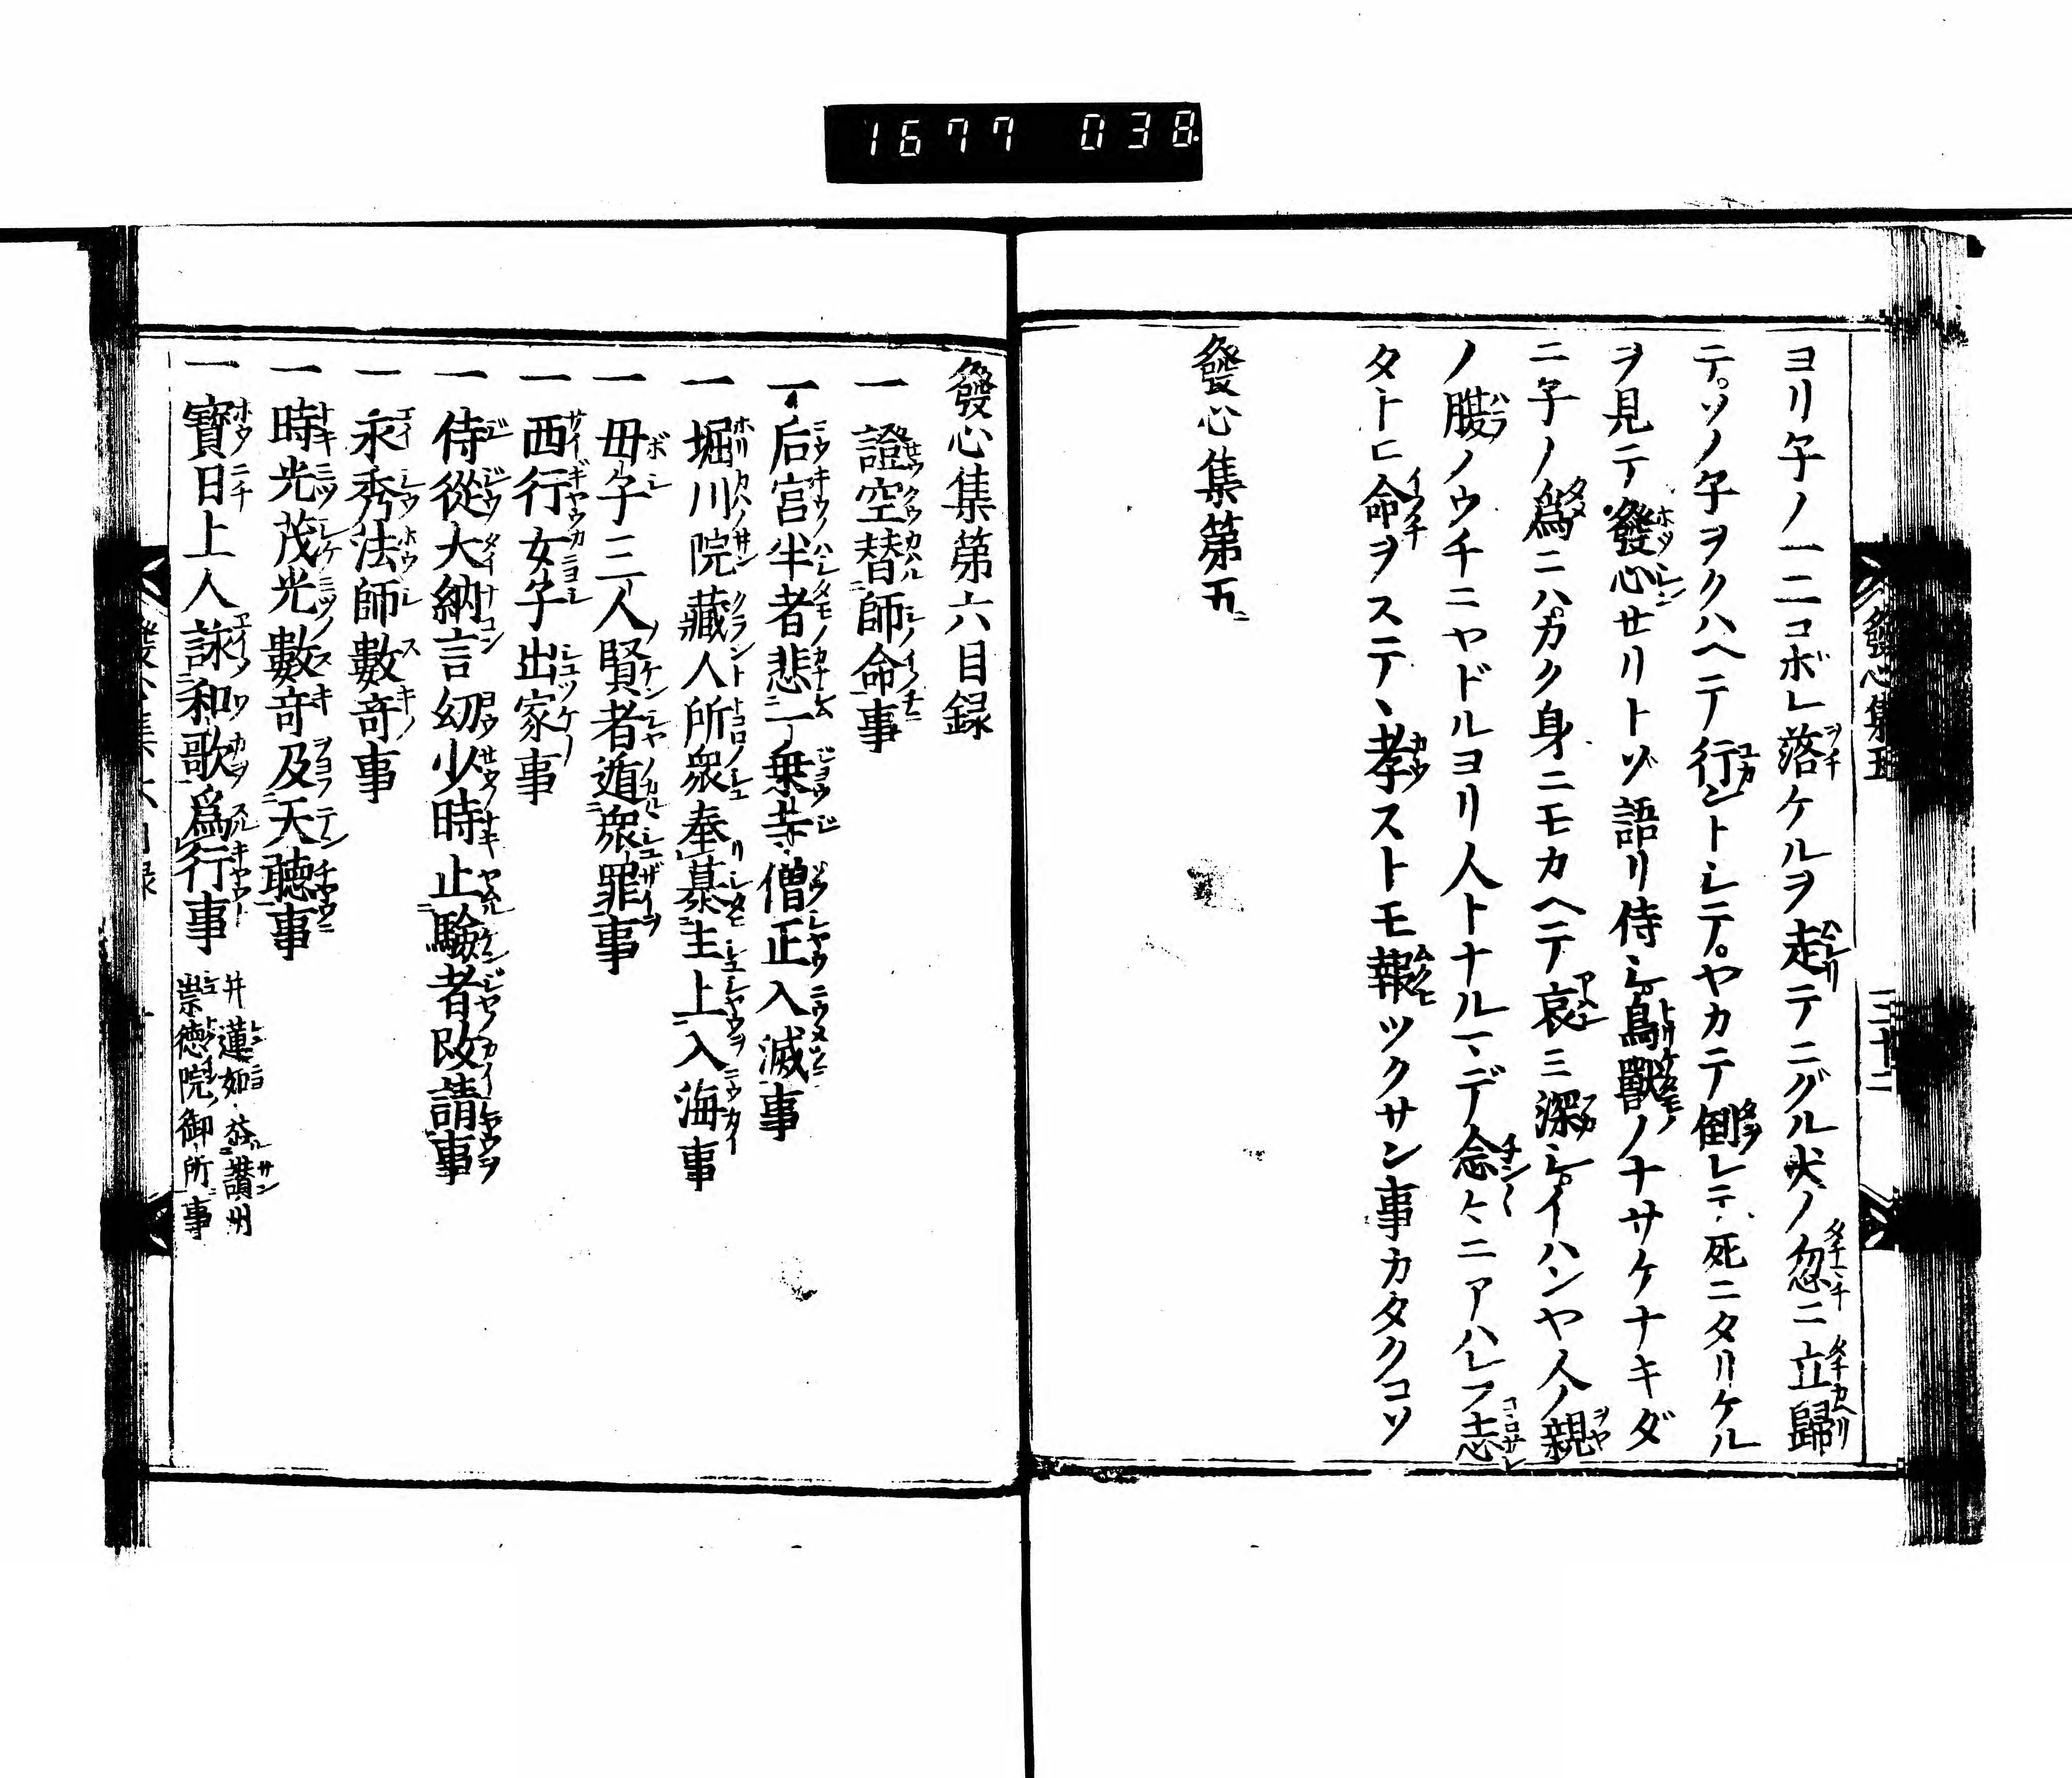 1677 038
發心集五
三十二
ヨリ子ノ一二コボレ落ケルヲ走テニグル犬ノ忽ニ立歸
テ。ソノ子ヲクハヘテ行ントシテ。ヤカテ倒レテ死ニタリケル
ヲ見テ發心セリトゾ語リ侍シ。鳥獸ノナサケナキダ
ニ子ノ爲ニハ。カク身ニモカヘテ哀ミ深シ。イハンヤ人ノ親
ノ腹ノウチニヤドルヨリ人トナルマデ念々ニアハレフ志
タトヒ命ヲステヽ孝ストモ報ツクサン事カタクコソ
發心集第五
發心集第六目録
一 證空替師命事
一 后宮半者悲一乗寺僧正入滅事
一 堀川院藏人所衆奉慕主上入海事
一 母子三人賢者遁衆罪事
一 西行女子出家事
一 侍從大納言幼少時止驗者改請事
一 永秀法師數奇事
一 時光茂光數奇及天聽事
一 寳日上人詠和歌爲行事 并蓮如參讃州
崇徳院御所事